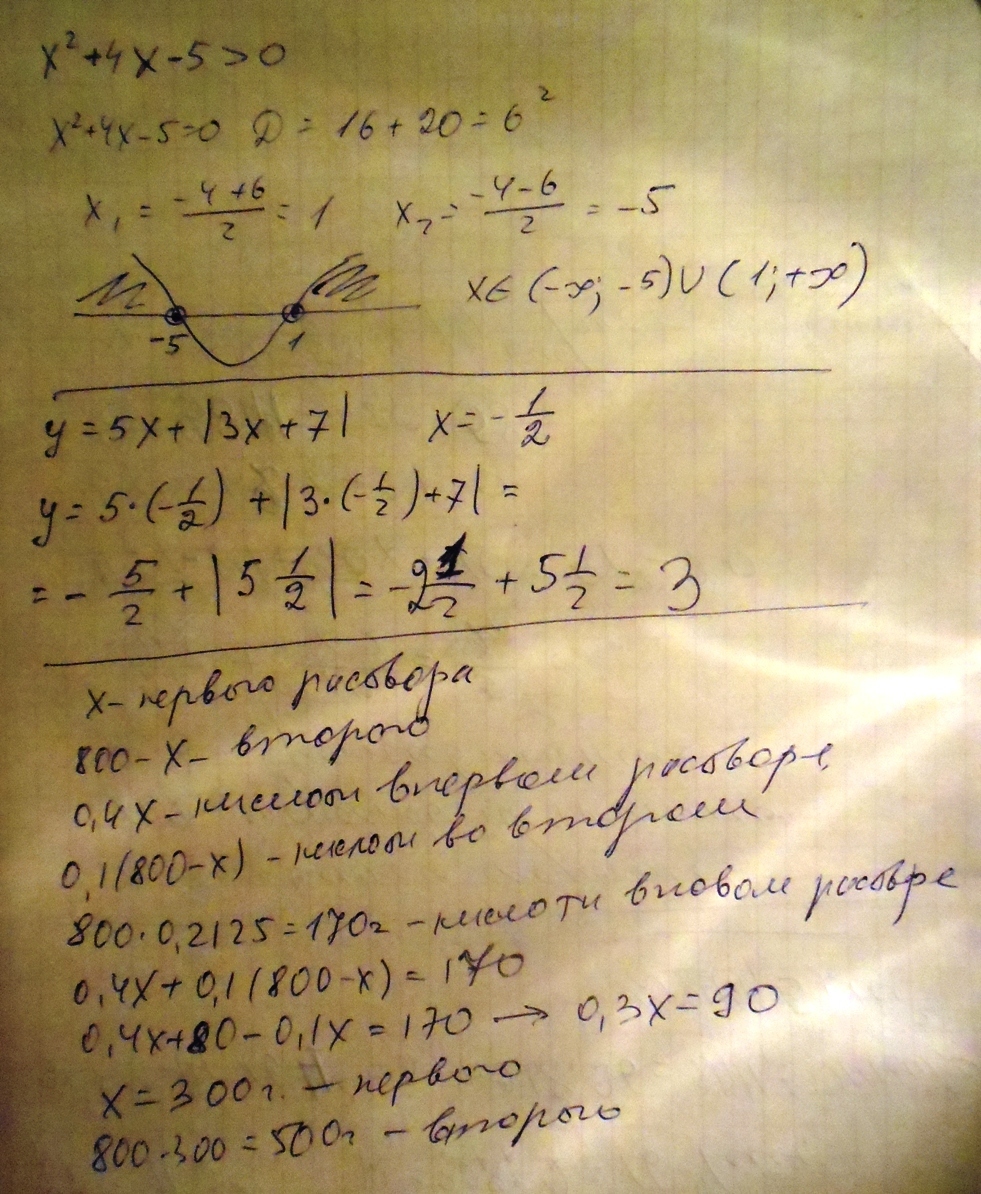 x²+4x-5>0
x²+4x-5=0 D = 16+20=6²
x₁ = (-4+6)/2 = 1 x₂ = (-4-6)/2 = -5
-5 1 x∈(-∞; -5)∪(1;+∞)
y=5x+|3x+7| x=-1/2
y=5·(-1/2)+|3·(-1/2)+7|=
=-5/2+|5 1/2|=-2 1/2+5 1/2=3
x- первого раствора
800-x- второго
0,4x-кислоты в первом растворе
0,1(800-x) - кислоты во втором
800·0,2125=170г -кислоты в новом растворе
0,4x+0,1(800-x)=170
0,4x+80-0,1x=170 → 0,3x=90
x=300г. - первого
800-300=500г - второго